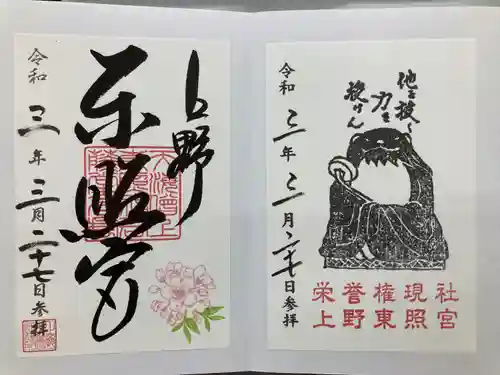 上野
東照宮
令和三年三月二十七日参拝
他を抜く
力を
授けん
令和三年三月二十七日参拝
栄誉権現社
上野東照宮